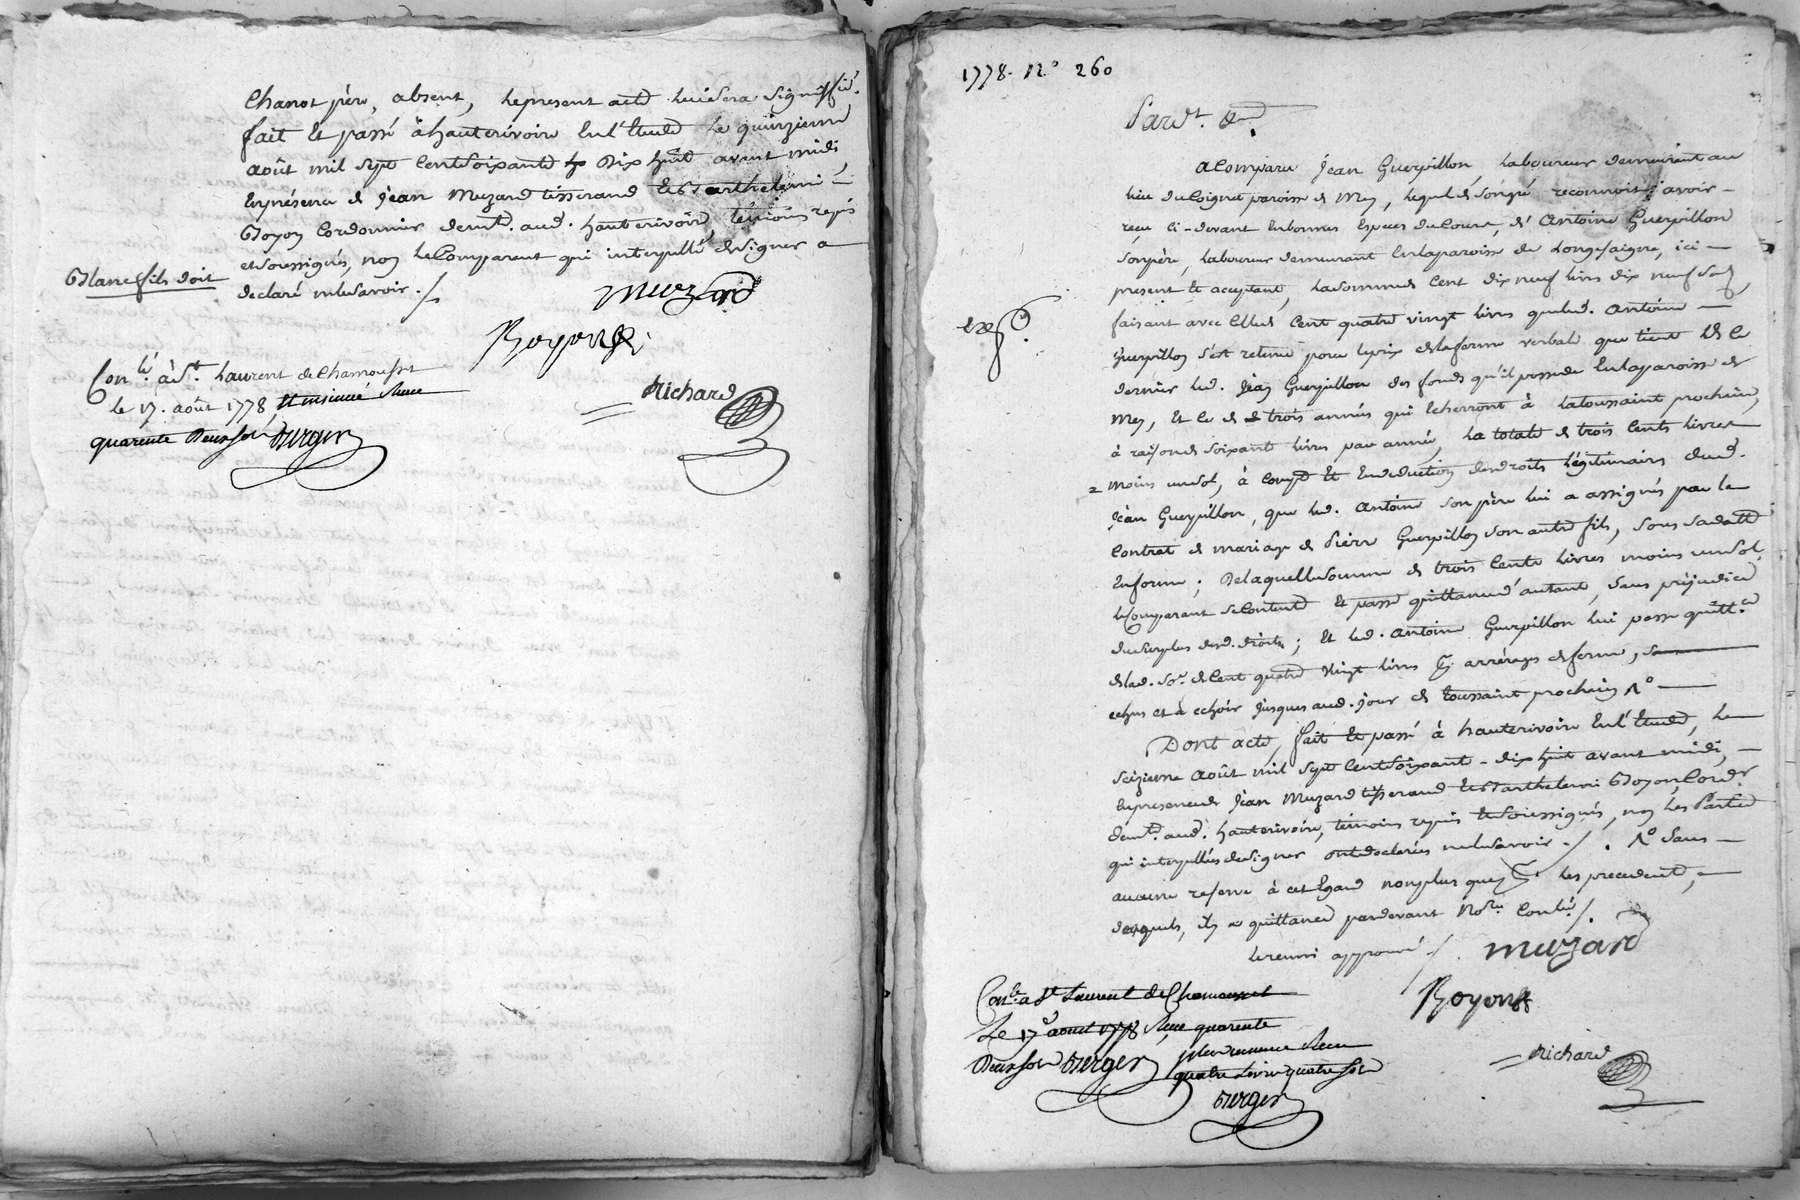 Chanot père, absent, le present acte lui sera signiffié.
fait et passé à hauterivoire en l'Etude le quinzieme
août mil sept cent soixante dix huit avant midi
en présence de Jean Muzard tisserand et Barthelemi
Boyon Cordonnier demt. aud. hauterivoire, témoins requis
et soussignés, non le Comparant qui interpellé de signer a
déclaré ne le savoir ./.
Blanc fils doit
Muzard
Boyon
Richard
Conlé. à St. Laurent de Chamousset
le 17. août 1778,
quarente Deux sols Berger
1778. No 260
Pardt.
a Comparu Jean Guerpillon, laboureur demeurant au
lieu du Coignet paroisse de Mey, lequel de son gré reconnoit avoir
reçu ci-devant en bonnes Especes du Cours, d'Antoine Guerpillon
son père, laboureur demeurant en la paroisse de Longesaigne, ici
present et acceptant, la somme de Cent dix neuf livres dix neuf sols,
faisant avec Celle de Cent quatre vingt livres que led. Antoine
Guerpillon s'est retenu pour le prix de la ferme verbale que tient de ce
dernier led. Jean Guerpillon des fonds qu'il possede en la paroisse de
Mey, et ce de trois années qui echerront à la toussaint prochain,
à raison de soixante livres par année, la totale de trois Cents livres
moins un sol, à Compte et en deduction des droits légitimaires dud.
Jean Guerpillon, que led. Antoine son père lui a assignés par le
Contrat de mariage de Pierre Guerpillon son autre fils, sous sa datte
en forme ; De laquelle somme de trois Cents livres moins un sol,
le Comparant se Contente et passe quittance d'autant, sans préjudice
du surplus desd. droits ; et led. Antoine Guerpillon lui passe quittce.
de lad. so.e de Cent quatre vingt livres pr. arrérages de ferme,
echus et à echoir jusques aud. jour de toussaint prochain
Dont acte, fait et passé à hauterivoire en l'Etude, le
seizieme août mil sept cent soixante-dix huit avant midi,
en presence de Jean Muzard tisserand et Barthelemi Boyon Cordr.
demt. aud. hauterivoire, témoins requis et soussignés, non les Parties
qui interpellées de signer ont declarées ne le savoir ./. sans
aucune reserve à cet Egard non plus que pr. les precedents,
desquels, il a quittancé pardevant Nore. Conlé ./.
le renvoi approuvé ./.
Muzard
Boyon
Richard
Conlé a St Laurent de Chamousset
Le 17 aoust 1778 Reçu quarente
Deux sols Berger
quatre Livres quatre sols
Berger